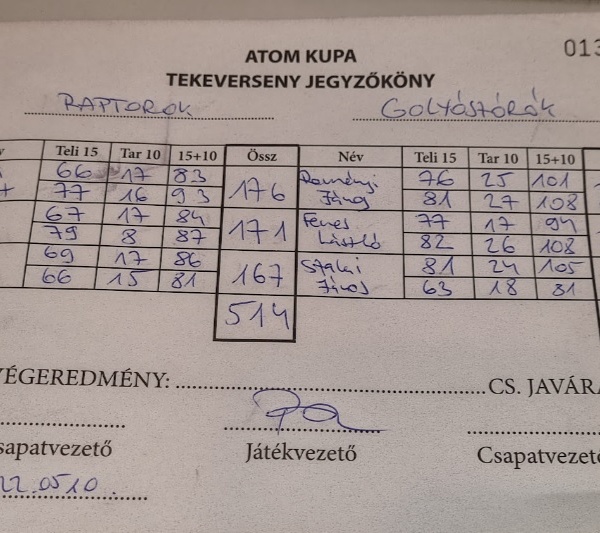 013
ATOM KUPA
TEKEVERSENY JEGYZŐKÖNY
RAPTOROK GOLYÓSZÓRÓK
Teli 15 Tar 10 15+10 Össz Név Teli 15 Tar 10 15+10
66 17 83 176 76 25 101
77 16 93 János 81 27 108
67 17 84 171 77 17 94
79 8 87 László 82 26 108
69 17 86 167 Szalai 81 24 105
66 15 81 János 63 18 81
514
VÉGEREDMÉNY: CS. JAVÁRA
sapatvezető Játékvezető Csapatvezető
22.05.10.